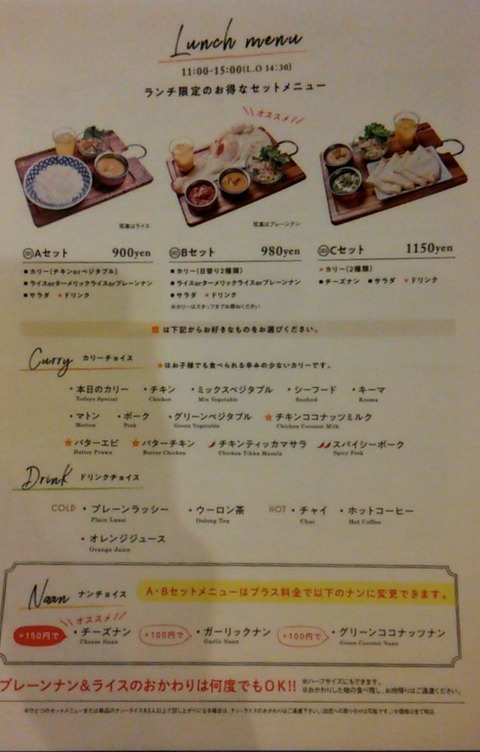 Lunch menu
11:00-15:00(L.O 14:30)
ランチ限定のお得なセットメニュー
オススメ!
写真はライス
写真はプレーンナン
Aセット 900yen
Bセット 980yen
Cセット 1150yen
■カリー(チキンorベジタブル)
■ライスorターメリックライスorプレーンナン
■サラダ ★ドリンク
■カリー(日替り2種類)
■ライスorターメリックライスorプレーンナン
■サラダ ★ドリンク
※カリーはスタッフまでお尋ねください
★カリー(2種類)
■チーズナン ■サラダ ★ドリンク
は下記からお好きなものをお選びください。
Curry カリーチョイス ★はお子様でも食べられる辛みの少ないカリーです。
・本日のカリー ・チキン ・ミックスベジタブル ・シーフード ・キーマ
Todays Special Chicken Mix Vegetable Seafood Keema
・マトン ・ポーク ・グリーンベジタブル ★チキンココナッツミルク
Mutton Pork Green Vegetable Chicken Coconut Milk
★バターエビ ★バターチキン チキンティッカマサラ スパイシーポーク
Butter Prawn Butter Chicken Chicken Tikka Masala Spicy Pork
Drink ドリンクチョイス
COLD ・プレーンラッシー ・ウーロン茶 HOT ・チャイ ・ホットコーヒー
Plain Lassi Oolong Tea Chai Hot Coffee
・オレンジジュース
Orange Juice
Naan ナンチョイス A・Bセットメニューはプラス料金で以下のナンに変更できます。
オススメ!
+150円で ・チーズナン +100円で ・ガーリックナン +100円で ・グリーンココナッツナン
Cheese Naan Garlic Naan Green Coconut Naan
プレーンナン&ライスのおかわりは何度でもOK!!
※ハーフサイズにもできます。
※おかわりした物の食べ残し、お持帰りはご遠慮ください。